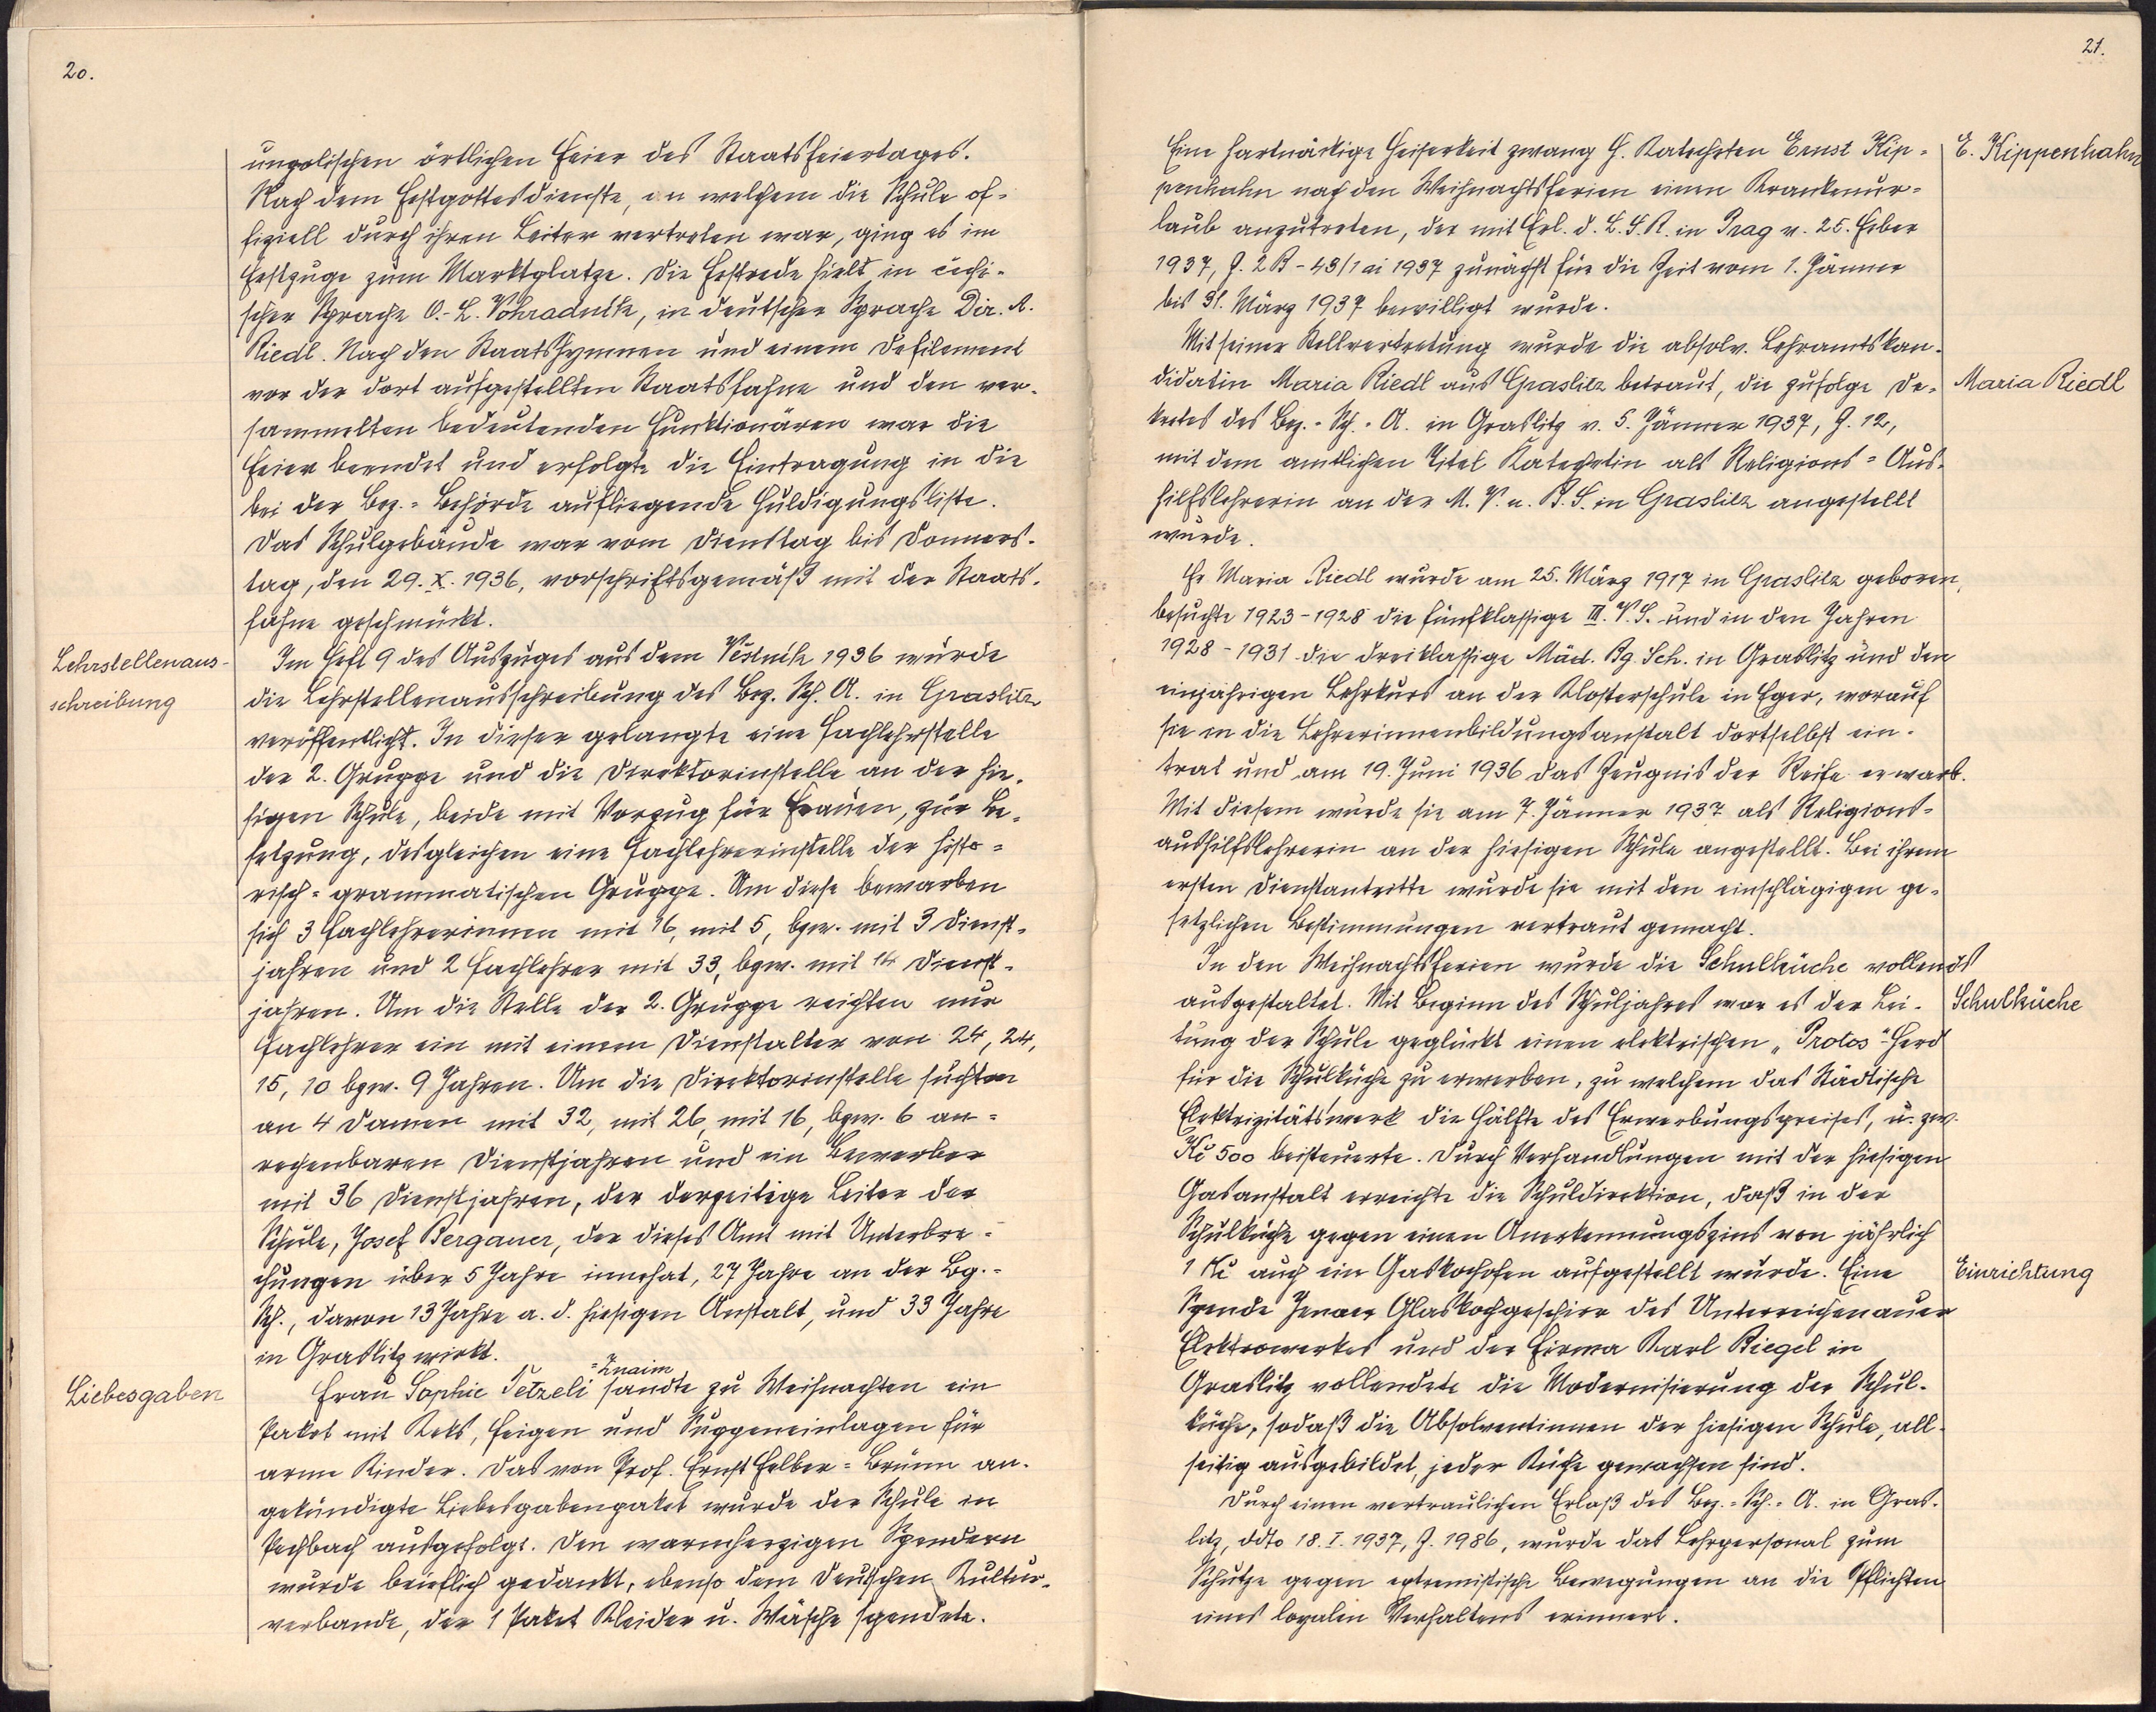 20.
ungolischen örtlichen Feier des Staatsfeiertages.
Nach dem Festgottesdienste, an welchem die Schule of-
fiziell durch ihren Leiter vertreten war, ging es im
Festzuge zum Marktplatze. Die Festrede hielt in čechi-
scher Sprache O.-L. Vohradnik, in deutscher Sprache Dir. A.
Riedl. Nach den Staatshymnen und einem Defilement
vor der dort aufgestellten Staatsfahne und den ver-
sammelten bedeutenden Funktionären war die
Feier beendet und erfolgte die Eintragung in die
bei der Bez.-Behörde aufliegende Huldigungsliste.
Das Schulgebäude war vom Dienstag bis Donners-
tag, den 29. X. 1936, vorschriftsgemäß mit der Staats-
fahne geschmückt.
Lehrstellenaus-
schreibung
Im Heft 9 des Auszuges aus dem Věstník 1936 wurde
die Lehrstellenausschreibung des Bez. Sch. A. in Graslitz
veröffentlicht. In dieser gelangte eine Fachlehrstelle
der 2. Gruppe und die Direktorinstelle an der hie-
sigen Schule, beide mit Vorzug für Frauen, zur Be-
setzung, desgleichen eine Fachlehrerinstelle der histo-
risch-grammatischen Gruppe. Um diese bewarben
sich 3 Fachlehrerinnen mit 16, mit 5, bzw. mit 3 Dienst-
jahren und 2 Fachlehrer mit 33, bzw. mit 14 Dienst-
jahren. Um die Stelle der 2. Gruppe reichten nur
Fachlehrer ein mit einem Dienstalter von 24, 24,
15, 10 bzw. 9 Jahren. Um die Direktorinstelle suchten
an 4 Damen mit 32, mit 26, mit 16, bzw. 6 an-
rechenbaren Dienstjahren und ein Bewerber
mit 36 Dienstjahren, der derzeitige Leiter der
Schule, Josef Bergauer, der dieses Amt mit Unterbre-
chungen über 5 Jahre innehat, 27 Jahre an der Bg.-
Sch., davon 13 Jahre a. d. hiesigen Anstalt, und 33 Jahre
in Graslitz wirkt.
Liebesgaben
Frau Sophie Tetzeli =Znaim sandte zu Weihnachten ein
Paket mit Keks, Feigen und Suppeneinlagen für
arme Kinder. Das von Prof. Ernst Felber-Brünn an-
gekündigte Liebesgabenpaket wurde der Schule in
Pechbach ausgefolgt. Den warmherzigen Spendern
wurde brieflich gedankt, ebenso dem Deutschen Kultur-
verbande, der 1 Paket Kleider u. Wäsche spendete.
21.
E. Kippenhahn
Eine hartnäckige Heiserkeit zwang H. Katecheten Ernst Kip-
penhahn nach den Weihnachtsferien einen Krankenur-
laub anzutreten, der mit Erl. d. L. S. R. in Prag v. 25. Feber
1937, Z. 2 B - 43/1 ai 1937 zunächst für die Zeit vom 1. Jänner
bis 31. März 1937 bewilligt wurde.
Mit seiner Stellvertretung wurde die absolv. Lehramtskan-
Maria Riedl
didatin Maria Riedl aus Graslitz betraut, die zufolge De-
kretes des Bez.-Sch.-A. in Graslitz v. 5. Jänner 1937, Z. 12,
mit dem amtlichen Titel Katechetin als Religions-Aus-
hilfslehrerin an der M. V. u. B. S. in Graslitz angestellt
wurde.
Fr Maria Riedl wurde am 25. März 1917 in Graslitz geboren,
besuchte 1923-1928 die fünfklassige III. V. S. und in den Jahren
1928-1931 die dreiklassige Mäd. Bg. Sch. in Graslitz und den
einjährigen Lehrkurs an der Klosterschule in Eger, worauf
sie in die Lehrerinnenbildungsanstalt dortselbst ein-
trat und am 19. Juni 1936 das Zeugnis der Reife erwarb.
Mit diesem wurde sie am 7. Jänner 1937 als Religions-
aushilfslehrerin an der hiesigen Schule angestellt. Bei ihrem
ersten Dienstantritte wurde sie mit den einschlägigen ge-
setzlichen Bestimmungen vertraut gemacht.
In den Weihnachtsferien wurde die Schulküche vollends
Schulküche
ausgestaltet. Mit Beginn des Schuljahres war es der Lei-
tung der Schule geglückt einen elektrischen „Protos"-Herd
für die Schulküche zu erwerben, zu welchem das Städtische
Elektrizitätswerk die Hälfte des Erwerbungspreises, u. zw.
Kč 500 beisteuerte. Durch Verhandlungen mit der hiesigen
Gasanstalt erreichte die Schuldirektion, daß in der
Schulküche gegen einen Anerkennungszins von jährlich
Einrichtung
1 Kč auch ein Gaskochofen aufgestellt wurde. Eine
Spende Jenaer Glaskochgeschirr des Unterreichenauer
Elektrowerkes und der Firma Karl Riegel in
Graslitz vollendete die Modernisierung der Schul-
küche, sodaß die Absolventinnen der hiesigen Schule, all-
seitig ausgebildet, jeder Küche gewachsen sind.
Durch einen vertraulichen Erlaß des Bez.-Sch.-A. in Gras-
litz, ddto 18. I. 1937, Z. 1986, wurde das Lehrpersonal zum
Schutze gegen extremistische Bewegungen an die Pflichten
eines loyalen Verhaltens erinnert.